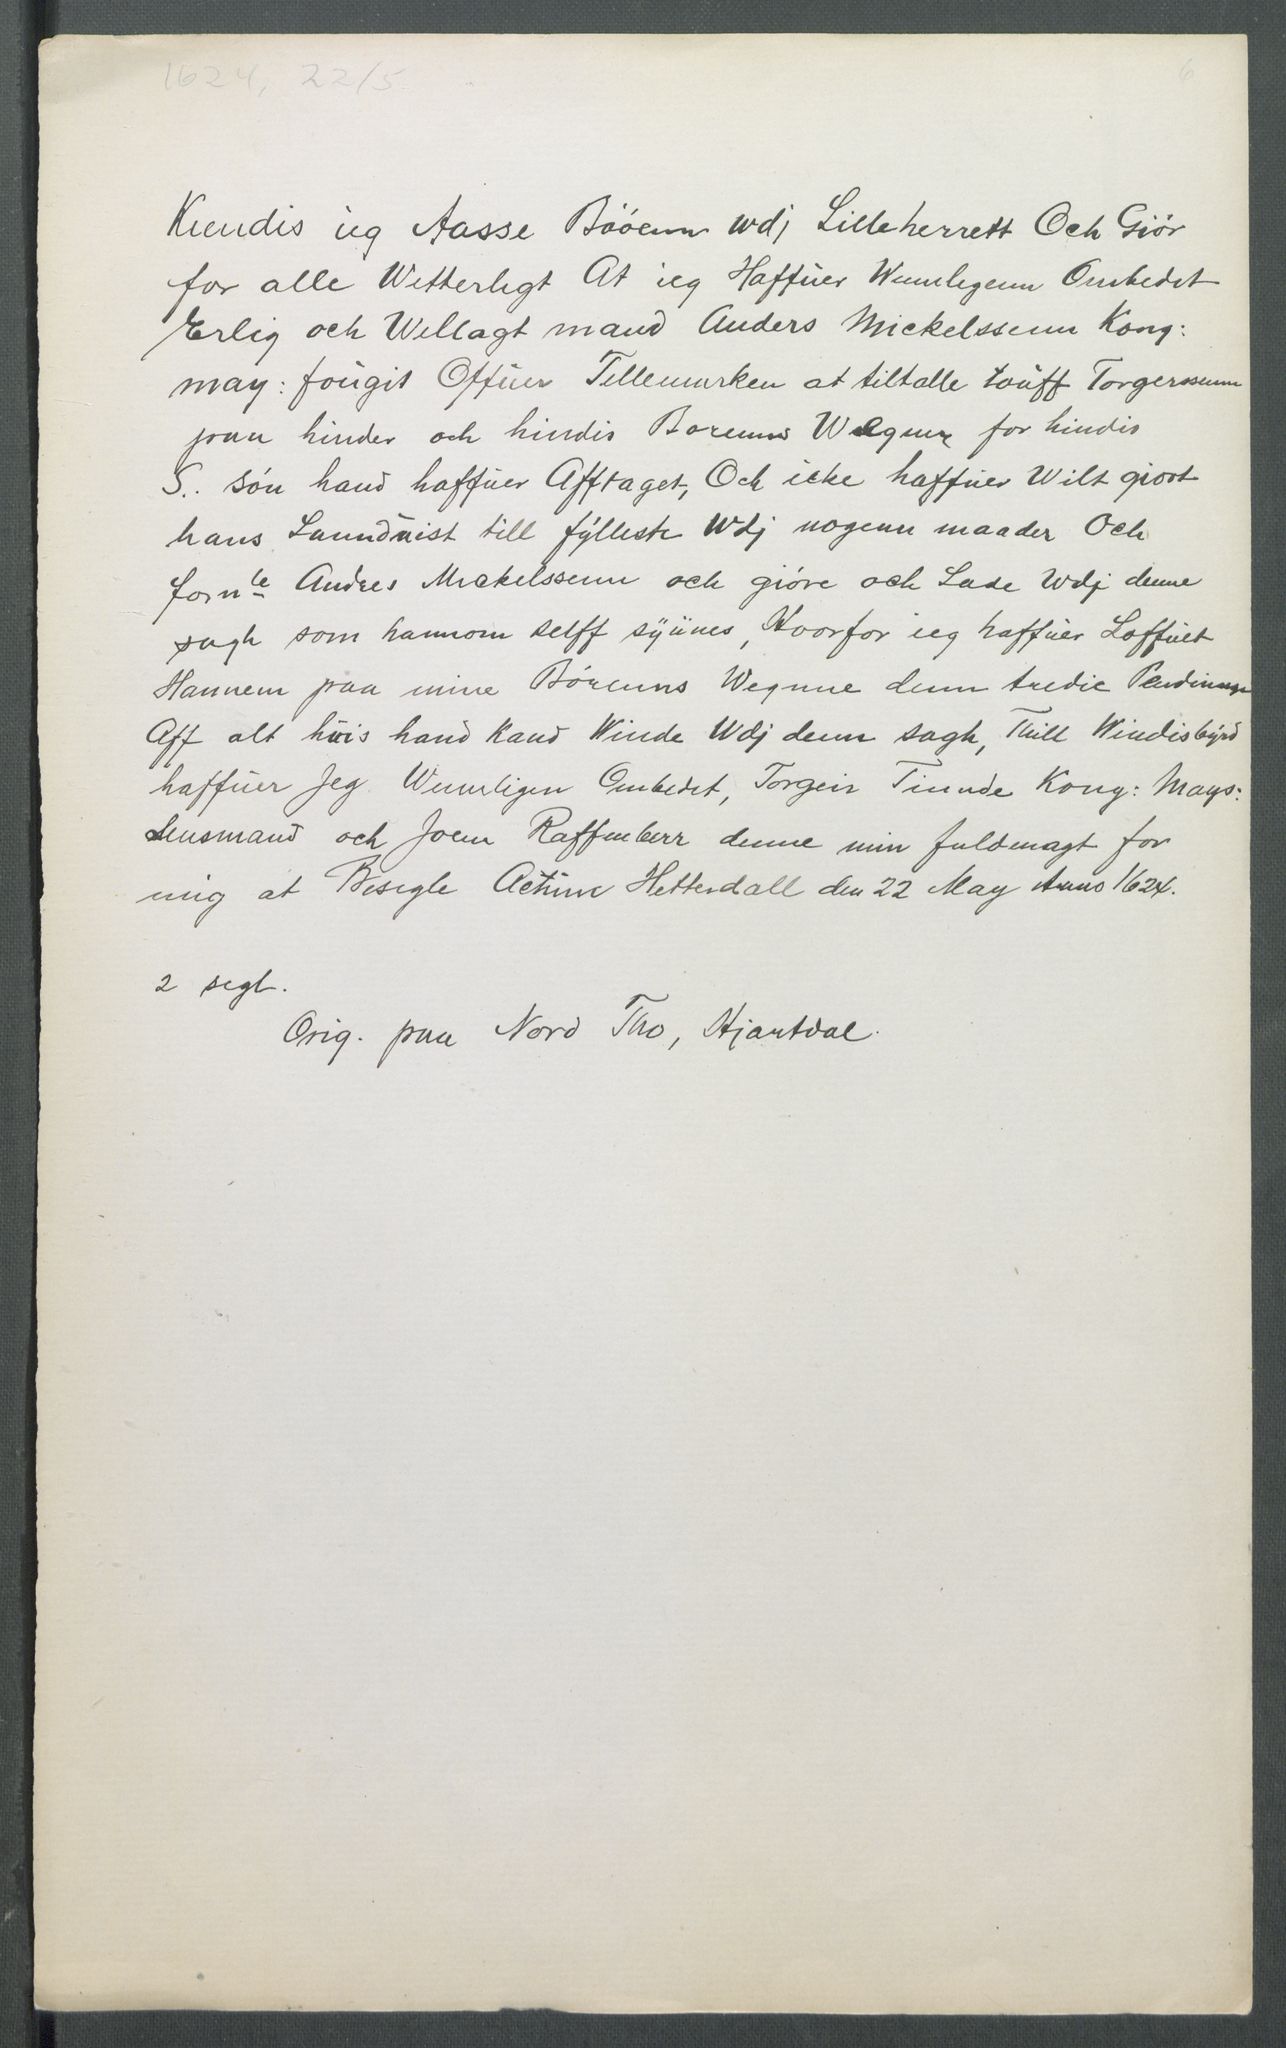 1624, 22/5
6
Kiendis ieg Aasse Bööenn wdj Lilleherrett Och Giör
for alle Witterligt At ieg Haffuer Wennligenn Ombedet
Erlig och Wellagt mand Anders Mickelssenn Kong:
may: fougit Offuer Tellemarken at tiltalle touff Torgerssenn
paa hinder och hindis Borenns Wegnne for hindis
S.. sön hand haffuer Afftaget, Och icke haffuer Wilt giort
hans Lanndvist till fylleste Wdj nogenn maader Och
fornte Andres Mickelssenn och giöre och Lade Wdj denne
sagh som hannom selff syünes, Hvorfor ieg haffuer Loffuet
Hannem paa mine Börenns Wegnne denn tredie Pendinnge
Aff alt huis hand kand Winde Wdj denn sagh, Thill Windisbyrd
haffuer Jeg Wennligen Ombedet, Torgeir Tinnde Kong: Mays:
Lensmand och Joen Raffnberr denne min fuldmagt for
mig at Besegle Actum Hetterdall den 22 May Anno 1624.
2 segl.
Orig. paa Nord Tho, Hjartdal.